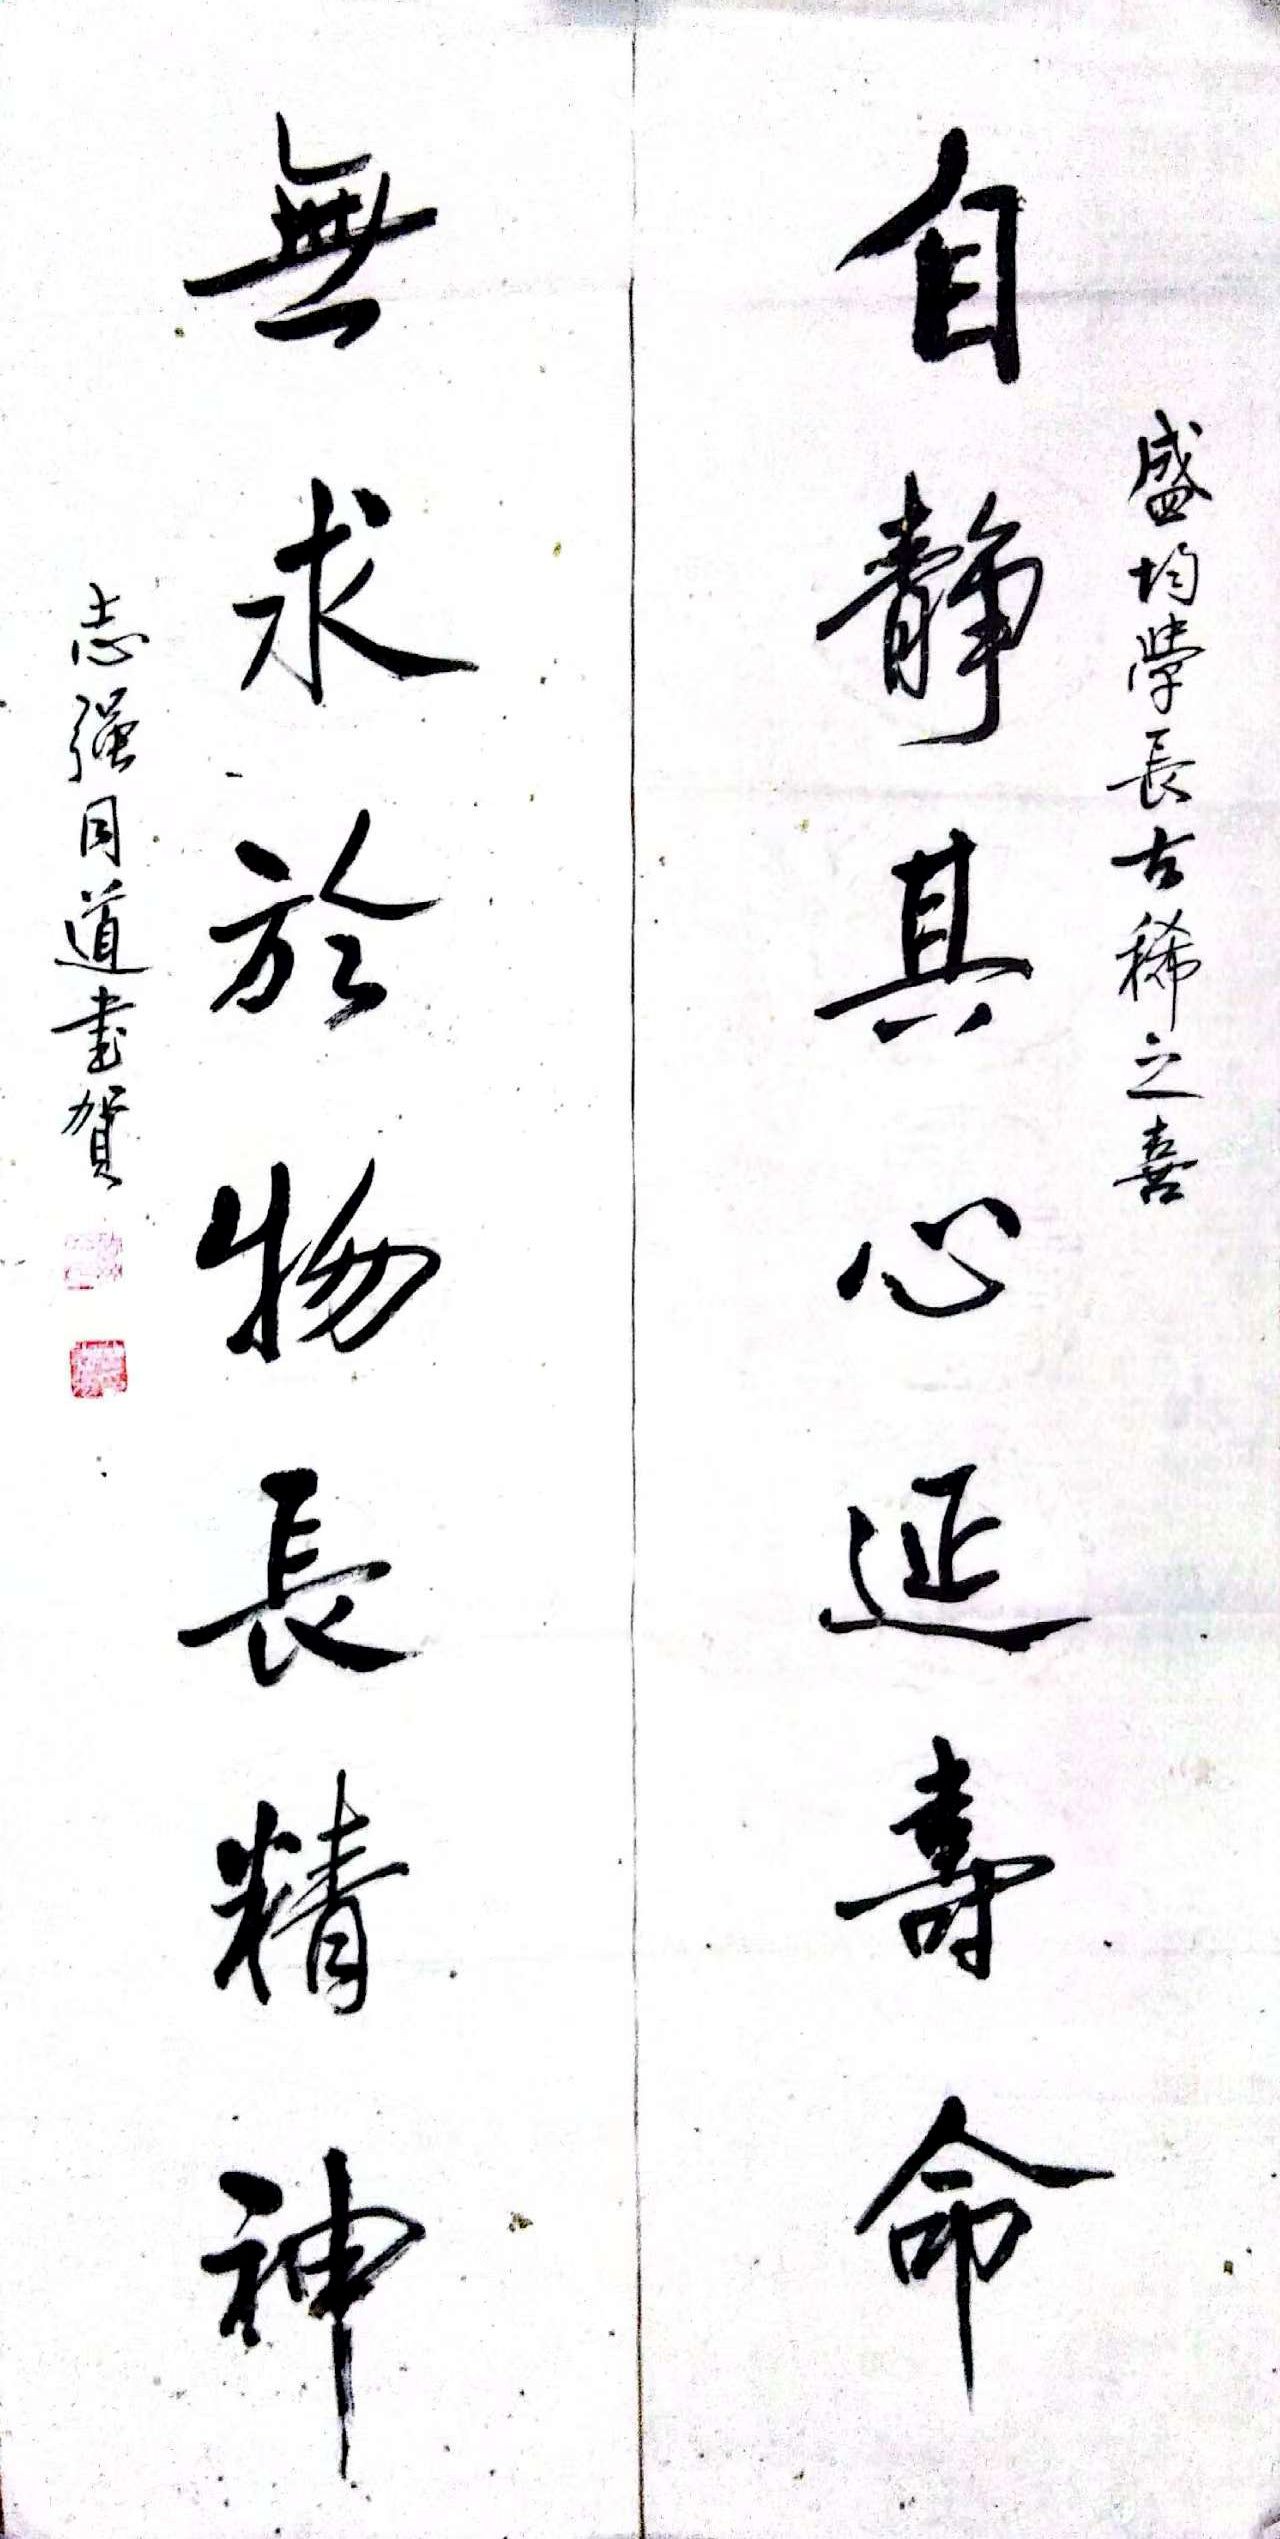 盛均學長古稀之喜
自靜其心延壽命
無求於物長精神
志强同道書賀